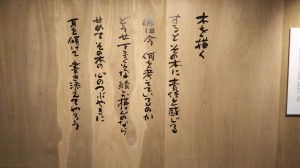 木を描く
するとその木に責任を感じる
今 何を考えているのか
どうせ下手くそな絵しか描けんのなら
せめてその木の心のつぶやきに
耳を傾けて 書き添えてやろう